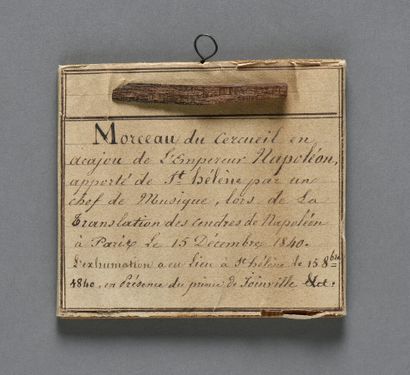 Morceau du Cercueil en
acajou de L'Empereur Napoléon,
apporté de St. hélène par un
chef de Musique, lors de La
translation des cendres de Napoléon
à Paris le 15 Décembre 1840.
L'exhumation a eu lieu à St hélène le 15 8bre
1840, en Présence du prince de Joinville &ct.